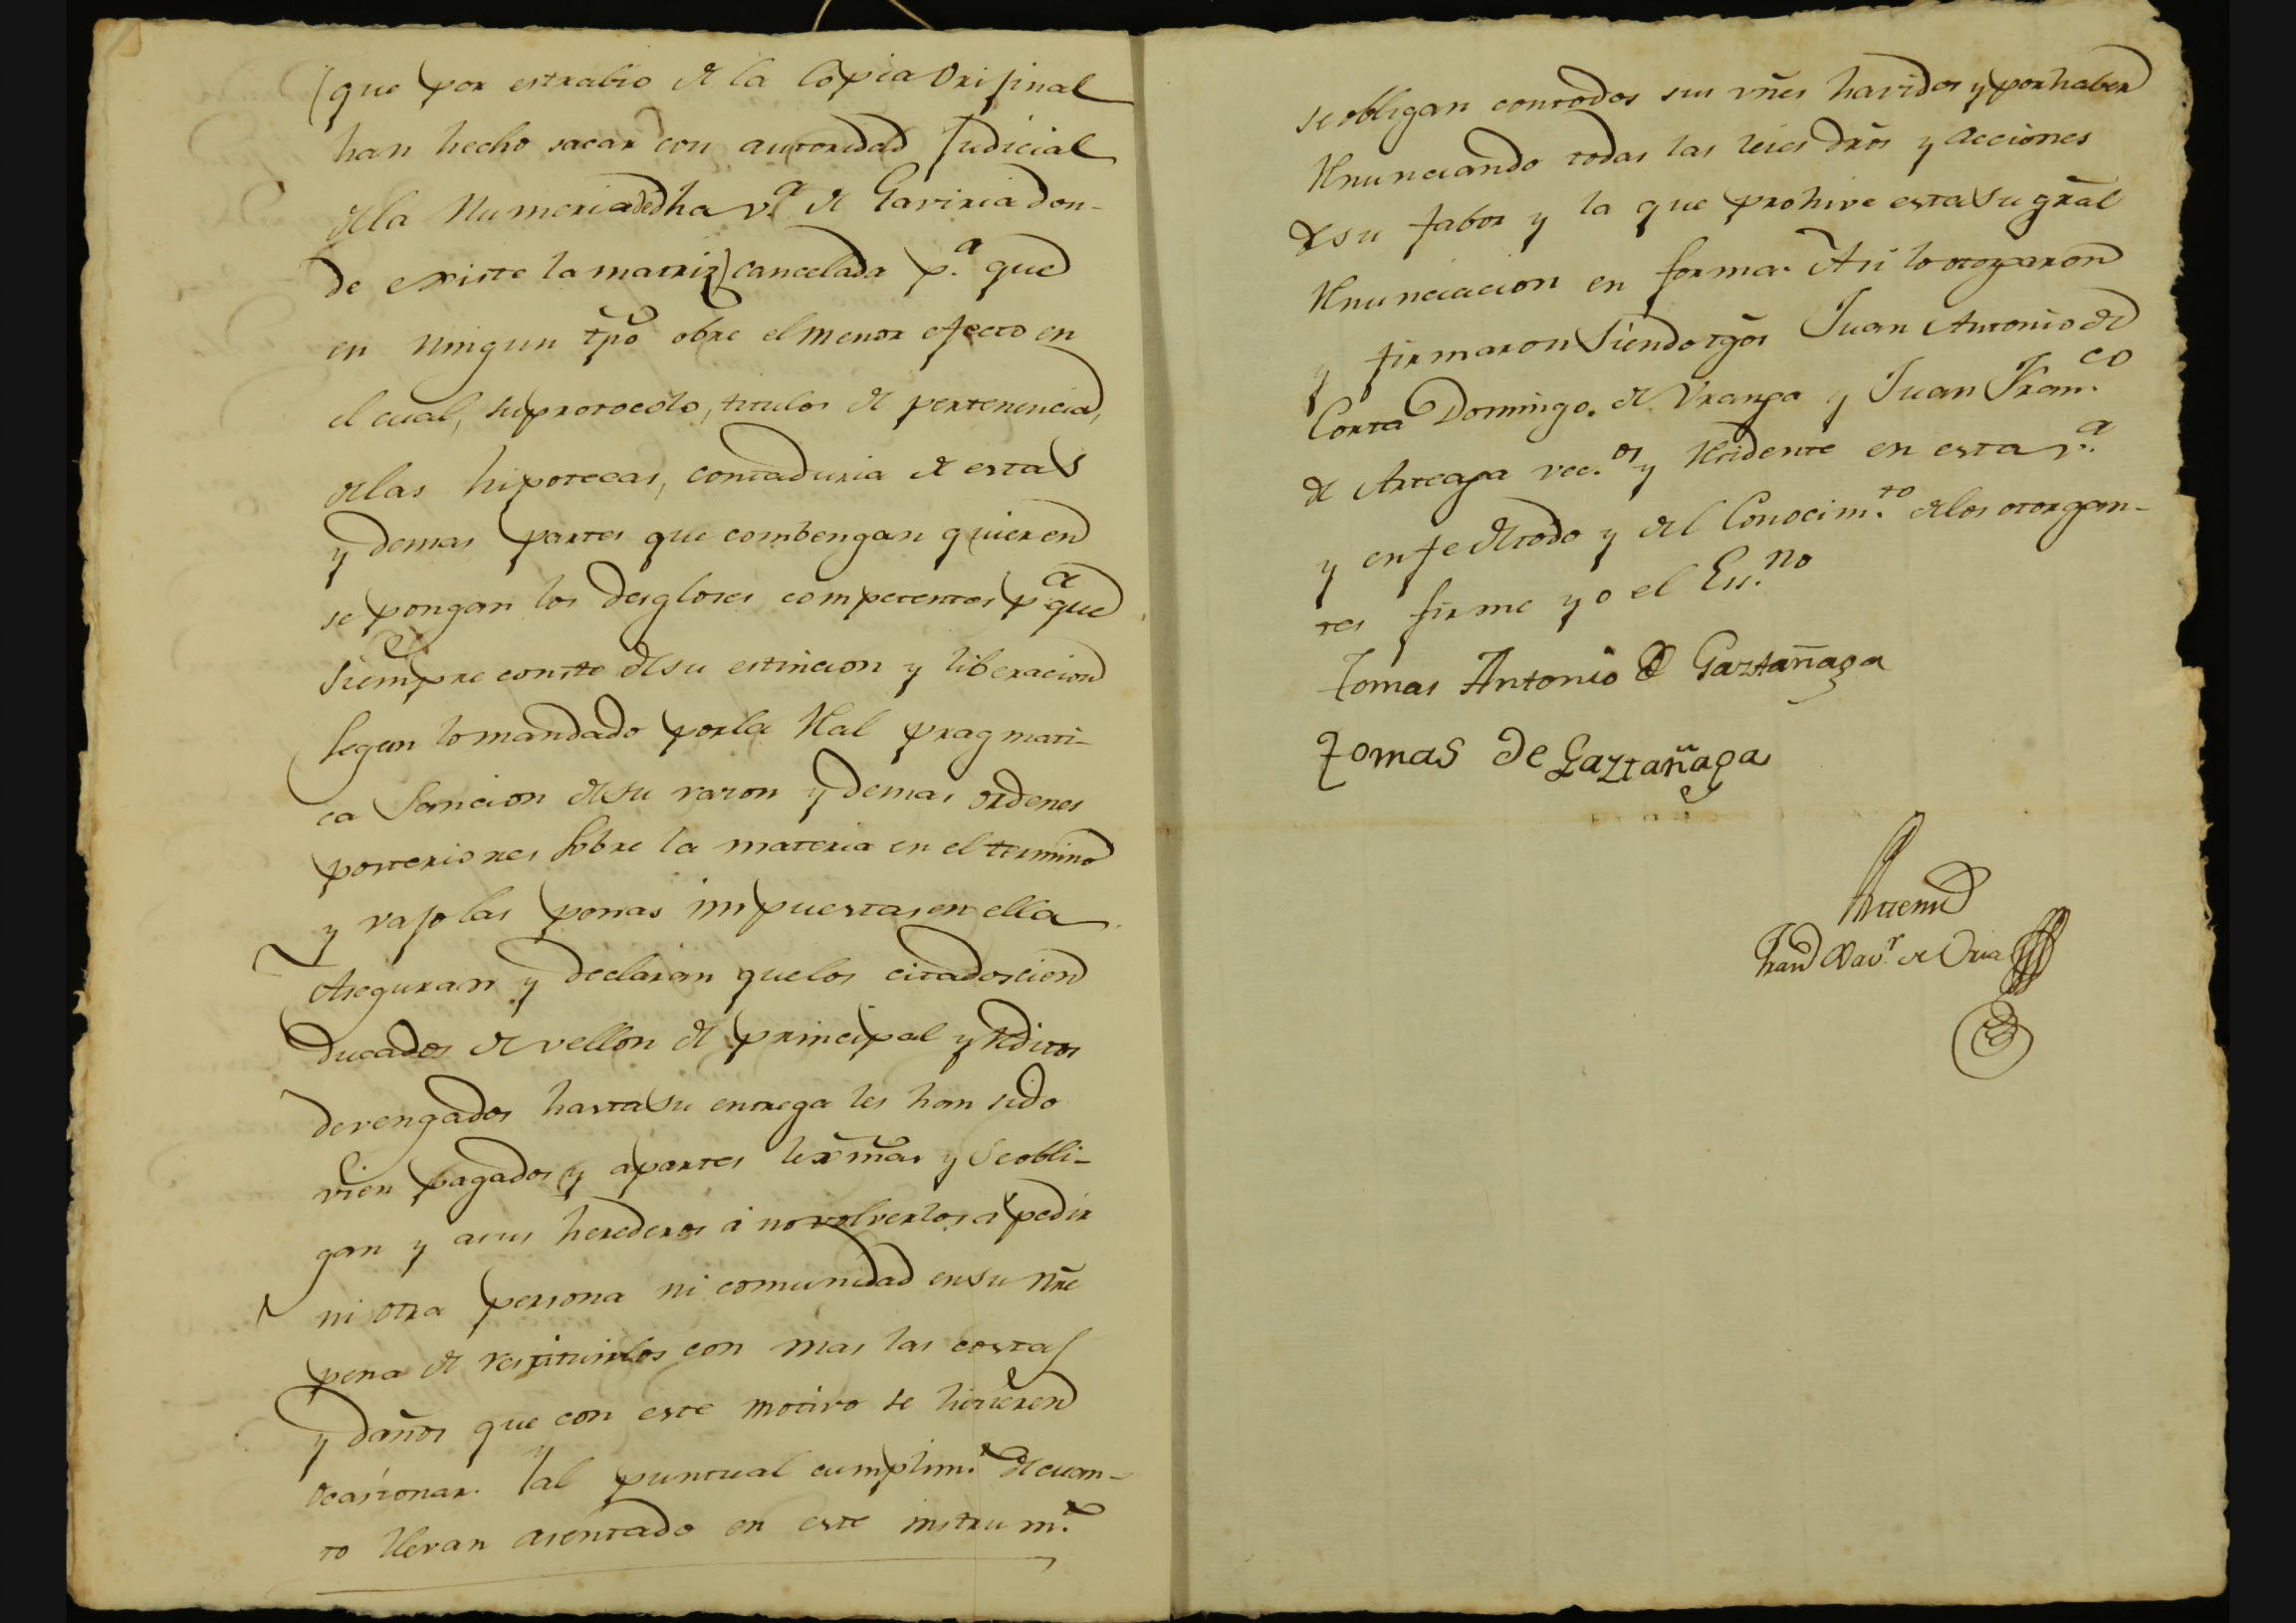 (que por estrabio de la Copia Orijinal
han hecho sacar con autoridad Judicial
de la Numeria de dha v.ª de Gaviria don-
de existe la matriz) cancelada p.ª que
en ningun tpõ obre el menor efecto en
el cual, su protocolo, titulos de pertenencia,
de las hipotecas, contaduria de estas
y demas partes que combengan quieren
se pongan los desgloses competentes p.ª que
siempre conste de su estincion y liberacion
segun lo mandado por la Real pragmati-
ca Sancion de su razon y demas ordenes
posteriores sobre la materia en el termino
y vajo las penas impuestas en ella.
Aseguran y declaran que los citados cien
Ducados de vellon de principal y reditos
devengados hasta su entrega les han sido
vien pagados y a partes lexmãs y se obli-
gan y a sus herederos á no volverlos a pedir
ni otra persona ni comunidad en su nr̃e
pena de restituirlos con mas las costas
y daños que con este motivo se hicieren
ocasionar. Y al puntual cumplim.to de cuan-
to llevan asentado en este instrum.to
se obligan con todos sus vñes havidos y por haber
Renunciando todas las leies dr̃os y acciones
de su fabor y la que prohive esta su gr̃al
Renunciacion en forma. Asi lo otorgaron
y firmaron siendo tgõs Juan Antonio de
Corta Domingo de Vranga y Juan Fran.co
de Arteaga vec.os y Residente en esta v.ª
y en fe de todo y del Conocim.to de los otorgan-
tes firme yo el Ess.no
Tomas Antonio de Gaztañaga
Tomas de Gaztañaga
Ante mi
Fran.co Xav.r de Oria